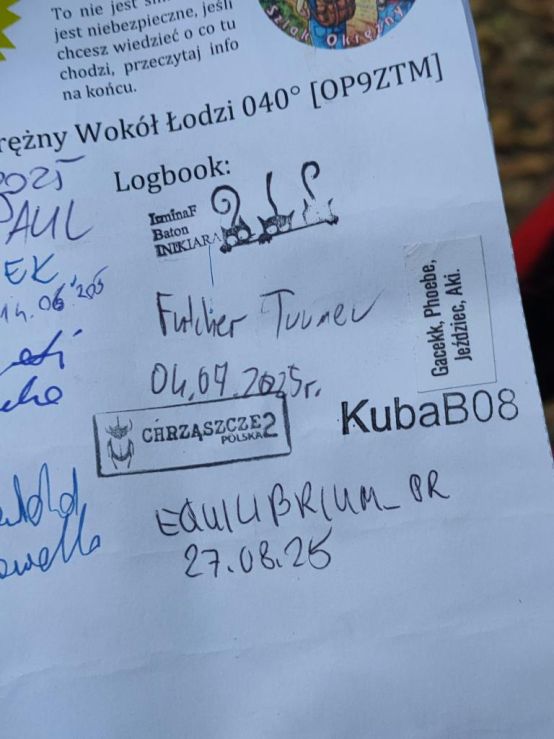 To nie jest
jest niebezpieczne, jeśli
chcesz wiedzieć o co tu
chodzi, przeczytaj info
na końcu.
Szlak Okrężny
rężny Wokół Łodzi 040° [OP9ZTM]
Logbook:
2025
PAUL
EK,
14.06.205
IsminaF
Baton
INIKIARA
Gacekk, Phoebe,
Jeździec, Aki.
04.07.2025r.
CHRZĄSZCZE2
POLSKA
KubaB08
EQUILIBRIUM_PR
27.08.25